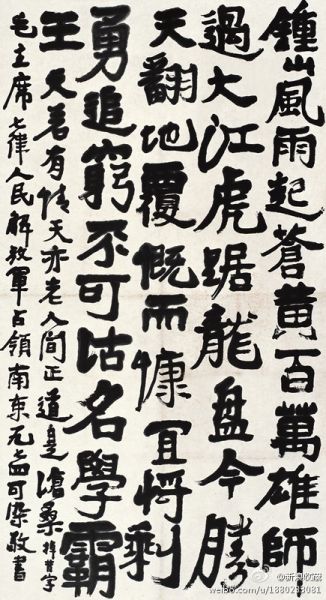 鍾山風雨起蒼黃百萬雄師
過大江虎踞龍盤今勝
天翻地覆慨而慷宜將剩
勇追窮不可沽名學霸
王天若有情天亦老人間正道是滄桑掉字
毛主席七律人民解放軍占領南京元旦可染敬書
@新浪收藏
weibo.com/u/1880213081